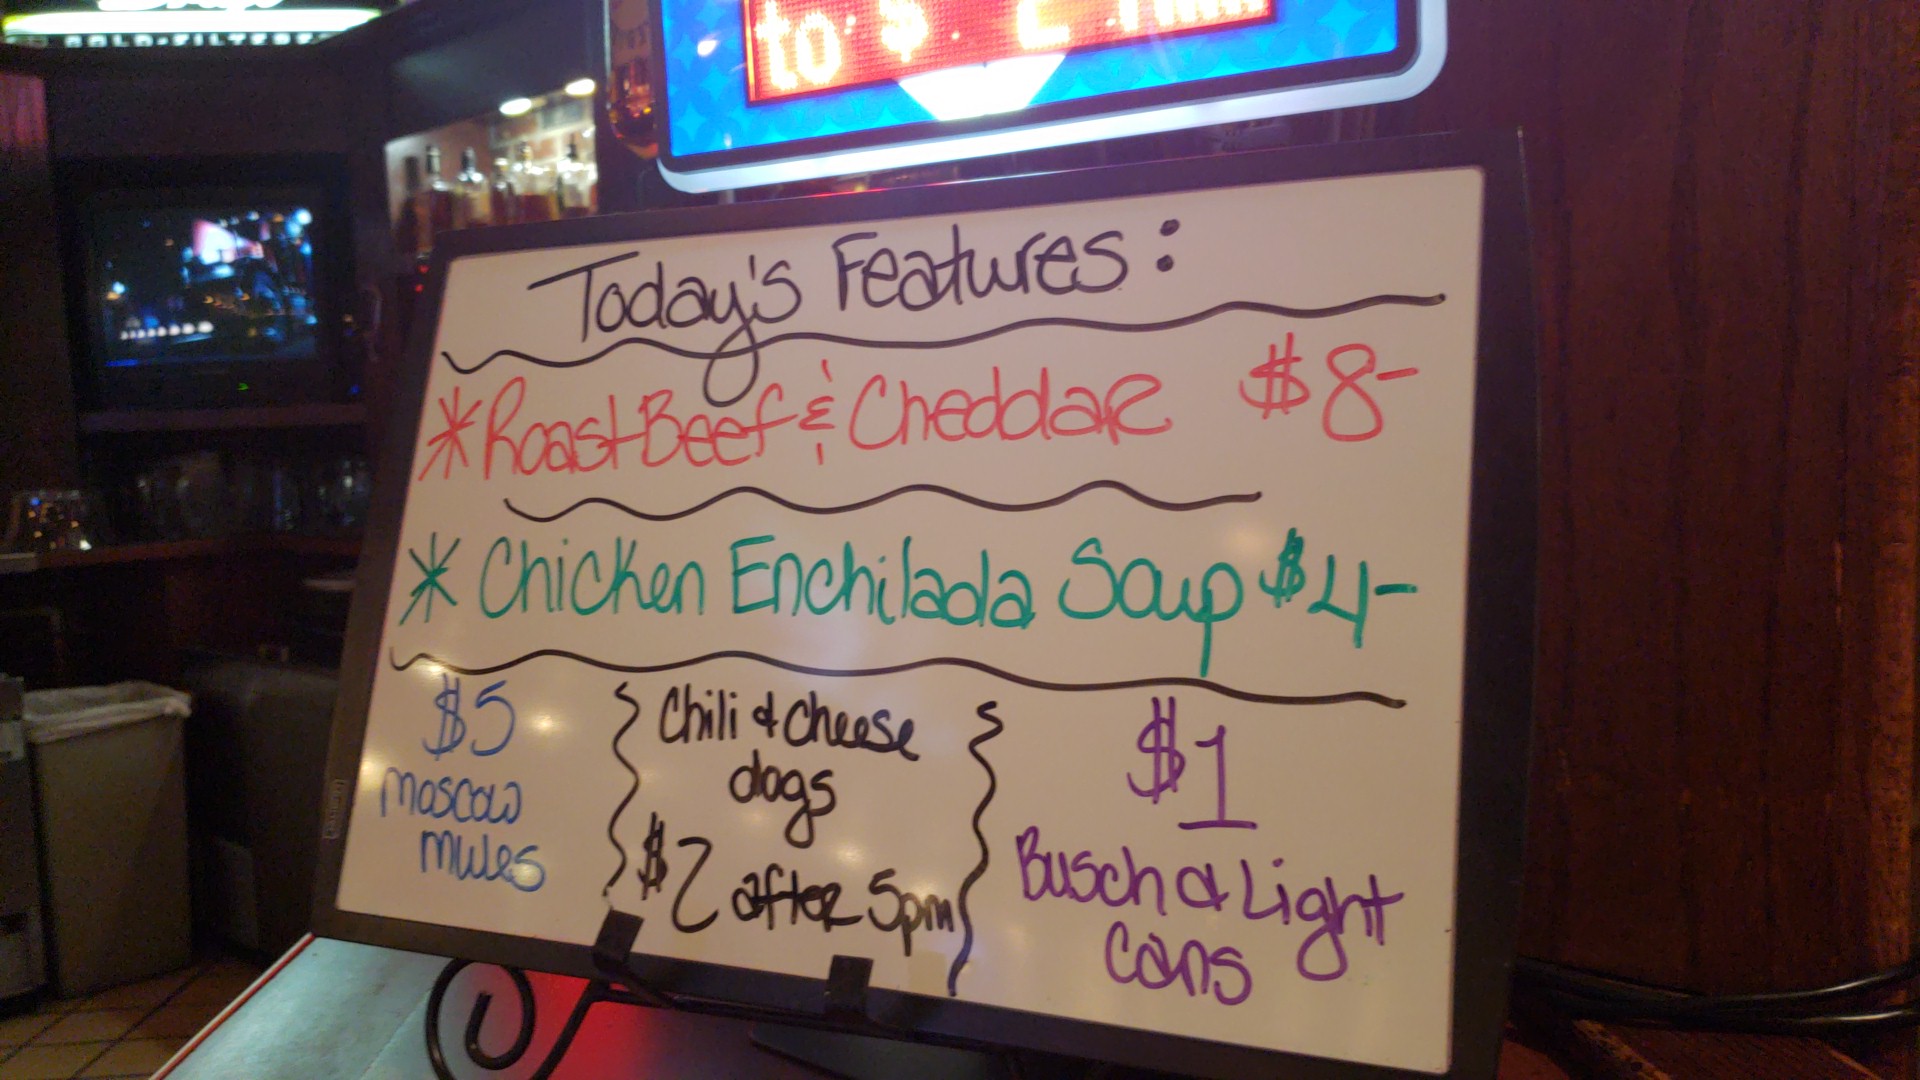 GOLD-FILTERED
to $
Today's Features:
* Roast Beef & Cheddar $8-
* Chicken Enchilada Soup $4-
$5
Moscow
mules
Chili & cheese
dogs
$2 after 5pm
$1
Busch & Light
Cans